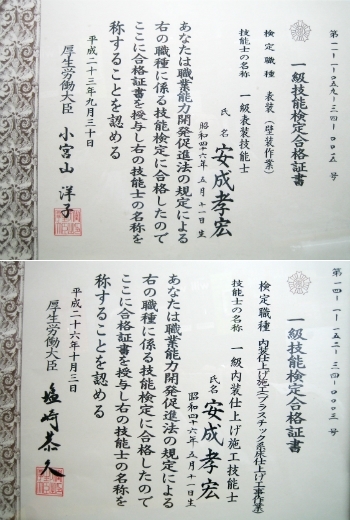 第一一-一-〇五九-三四-〇〇一五号
一級技能検定合格証書
検定職種 表装(壁装作業)
技能士の名称 一級表装技能士
氏名 安成孝宏
昭和四十六年五月十一日生
あなたは職業能力開発促進法の規定による
右の職種に係る技能検定に合格したので
ここに合格証書を授与し右の技能士の名称を
称することを認める
平成二十三年九月三十日
厚生労働大臣 小宮山洋子
第一四-一-一五二-三四-〇〇〇三号
一級技能検定合格証書
検定職種 内装仕上げ施工(プラスチック系床仕上げ工事作業)
技能士の名称 一級内装仕上げ施工技能士
氏名 安成孝宏
昭和四十六年五月十一日生
あなたは職業能力開発促進法の規定による
右の職種に係る技能検定に合格したので
ここに合格証書を授与し右の技能士の名称を
称することを認める
平成二十六年十月三日
厚生労働大臣 塩崎恭久